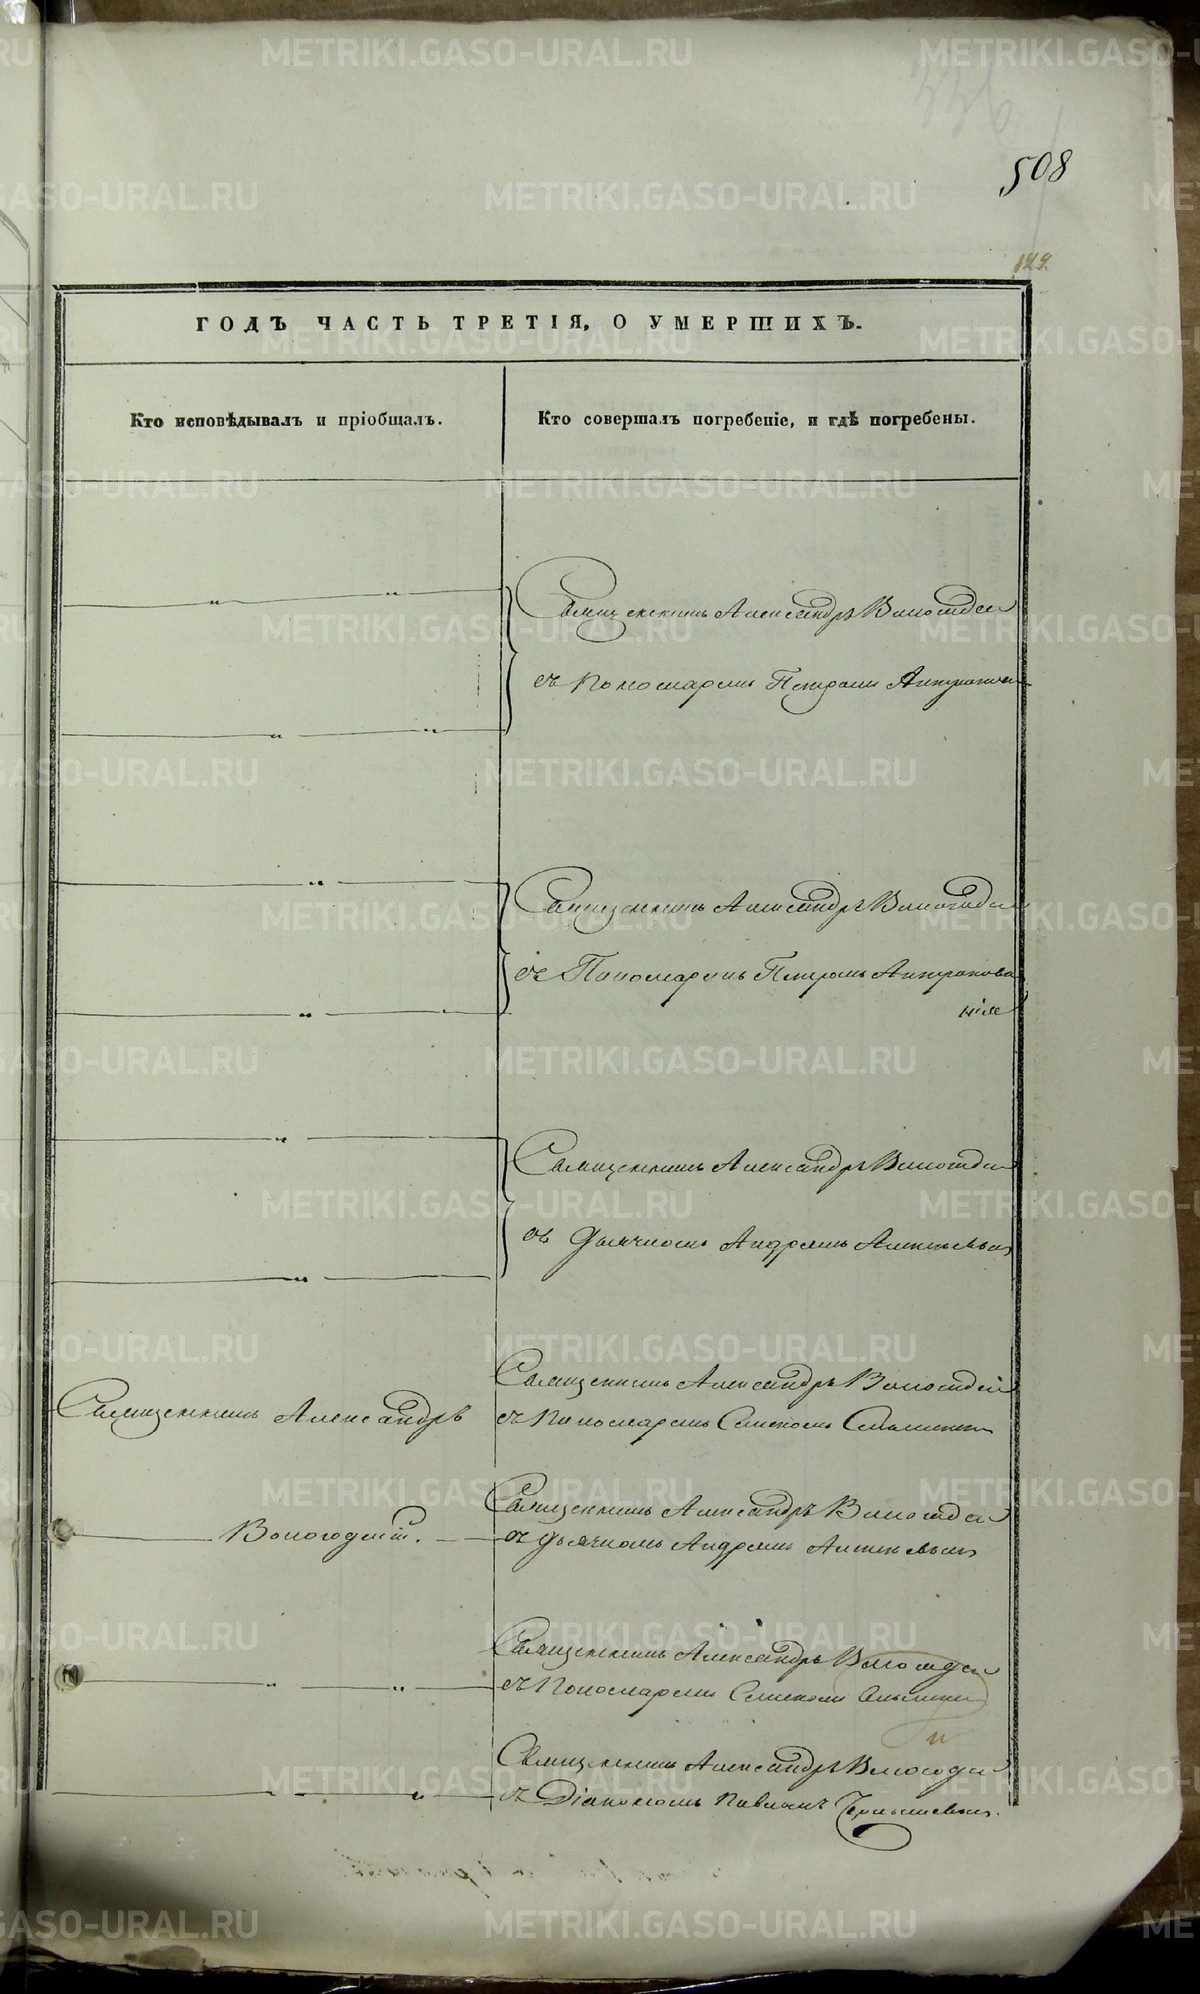 508
122
ГОДЪ ЧАСТЬ ТРЕТІЯ, О УМЕРШИХЪ.
Кто исповѣдывалъ и пріобщалъ.
Кто совершалъ погребеніе, и гдѣ погребены.
Священникъ Александръ Вологодскій
съ Пономаремъ Петромъ
Священникъ Александръ Вологодскій
съ Пономаремъ Петромъ
Священникъ Александръ Вологодскій
съ Дьячкомъ Андреемъ
Священникъ Александръ
Вологодскій.
Священникъ Александръ Вологодскій
съ Пономаремъ Семеномъ
Священникъ Александръ Вологодскій
съ Дьячкомъ Андреемъ
Священникъ Александръ Вологодскій
съ Пономаремъ Семеномъ
Священникъ Александръ Вологодскій
съ Діакономъ Павломъ
METRIKI.GASO-URAL.RU